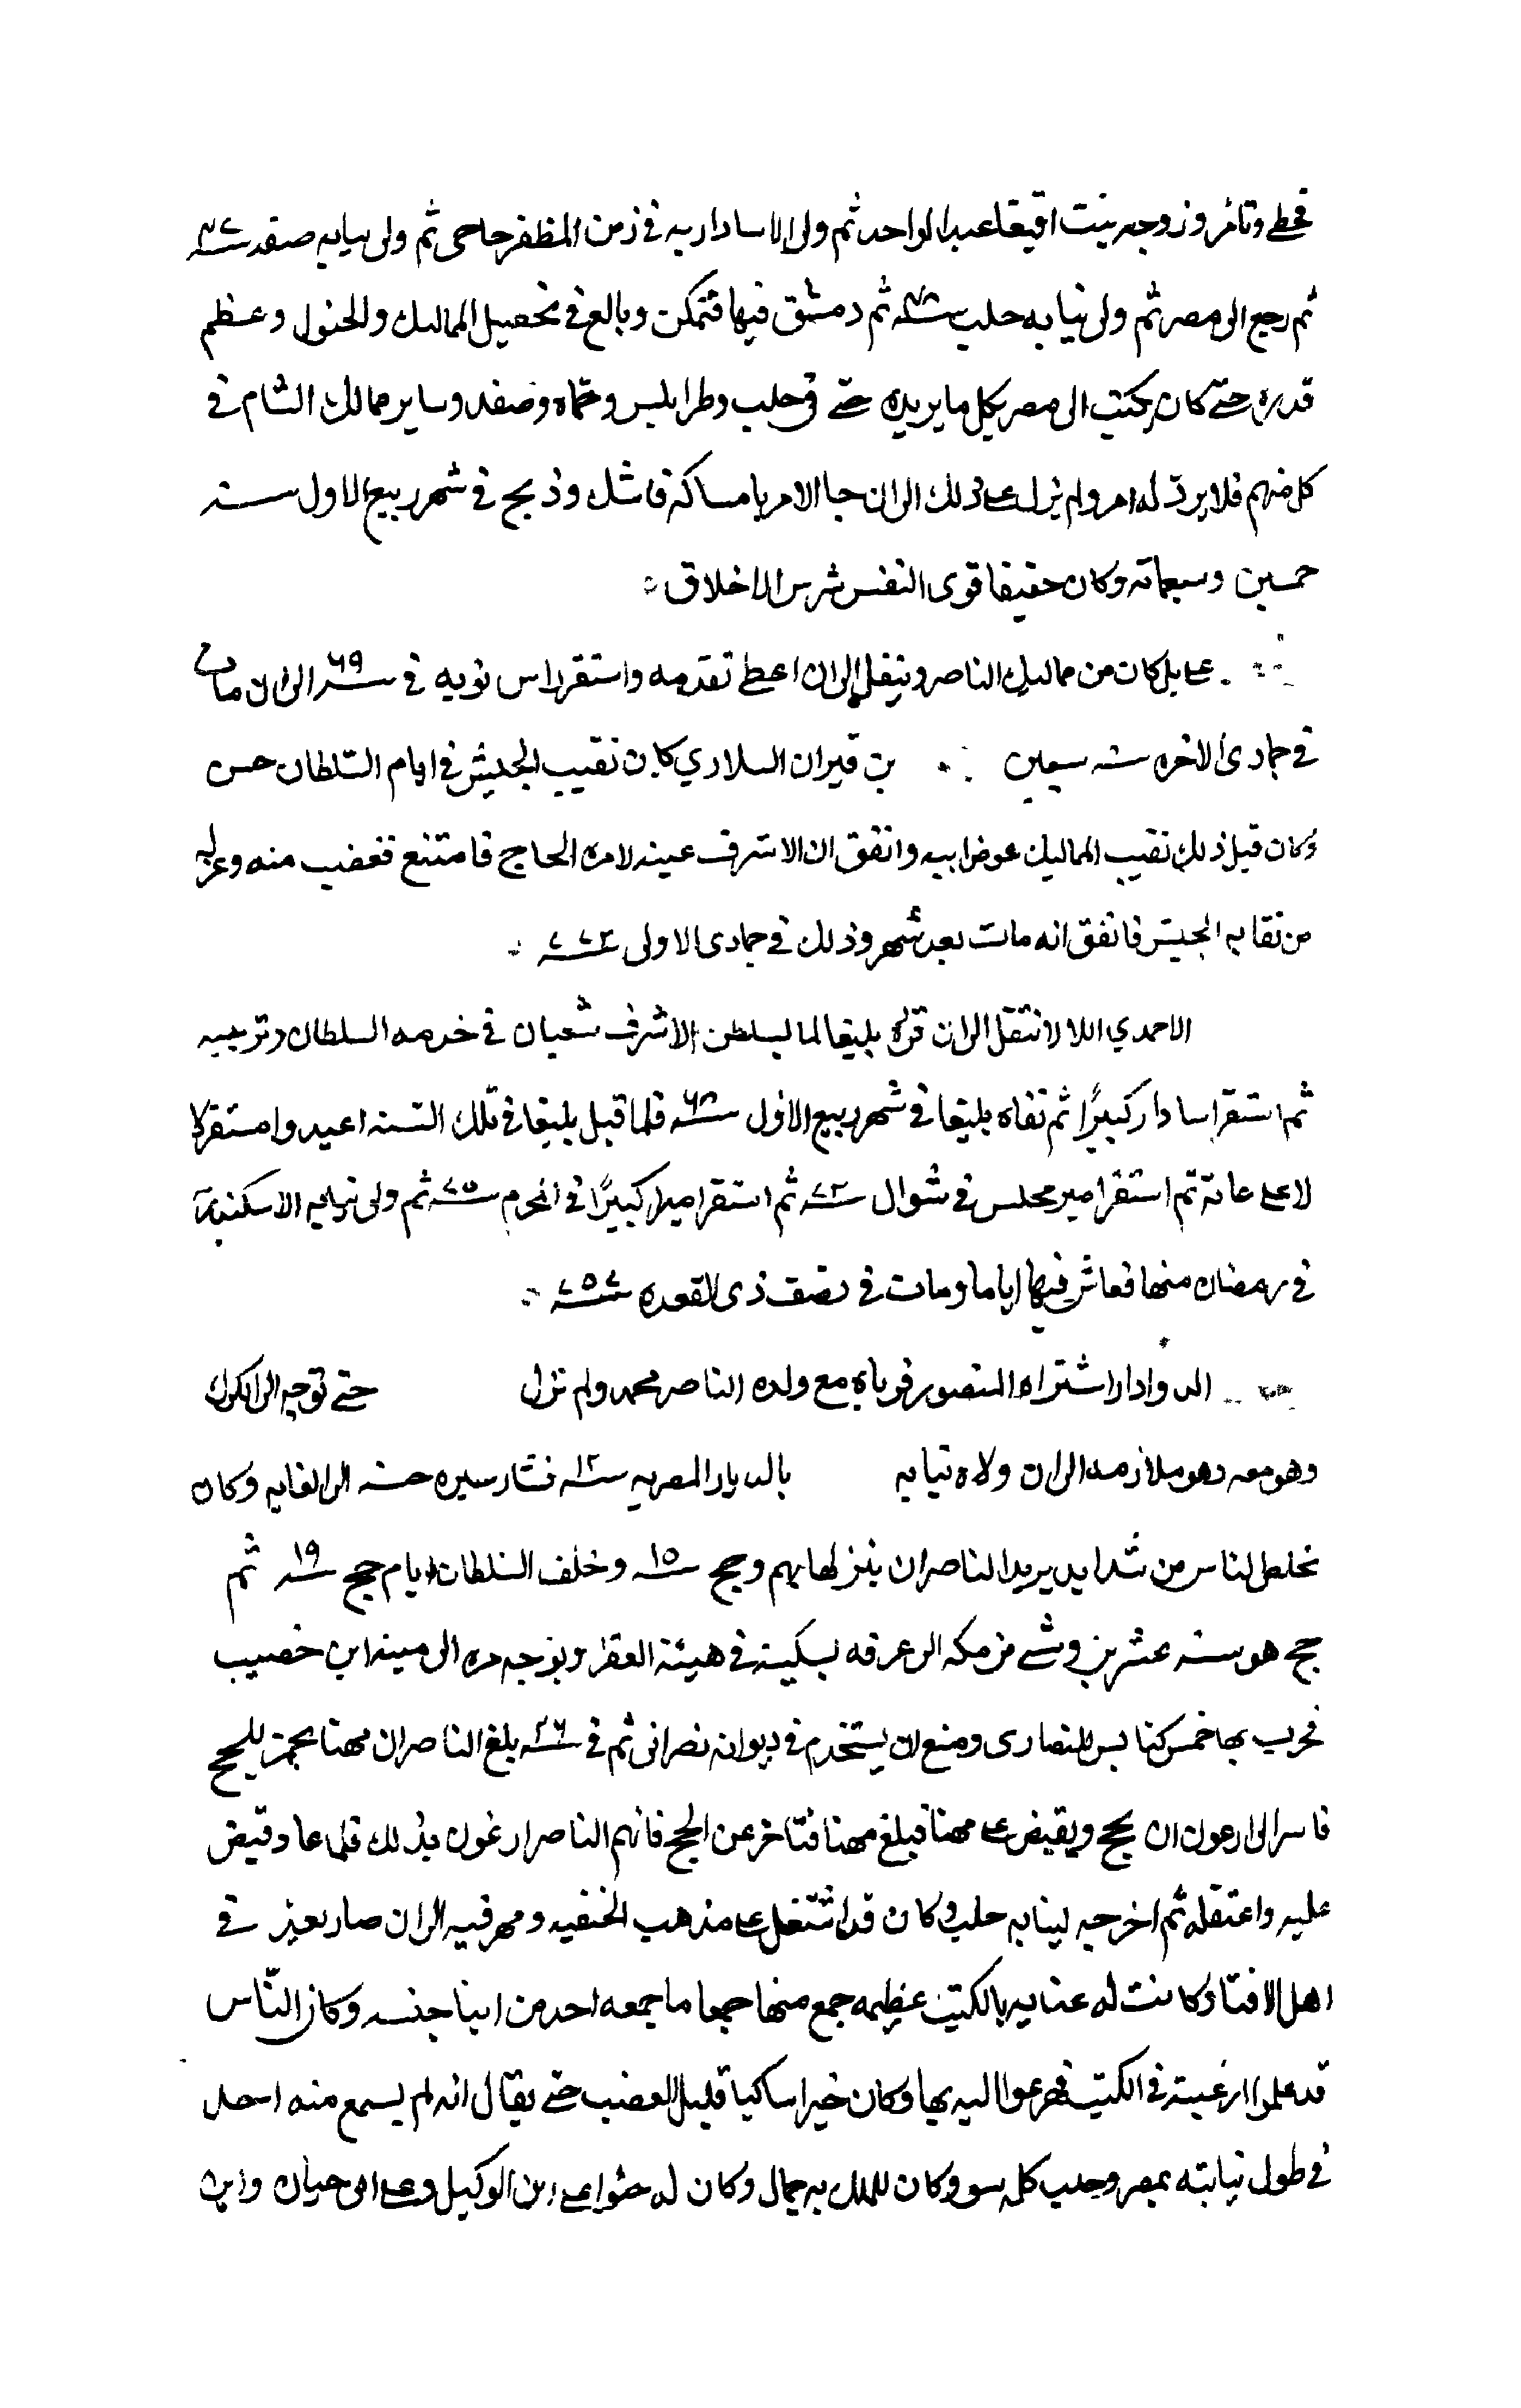 فحظي وتامر وزوجه بنت اقبغا عبد الواحد ثم ولى الاسادداريه في زمن المظفر حاجى ثم ولى نيابه صفد سنة ٤٧
ثم رجع الى مصر ثم ولى نيابه حلب سنة ٤٨ ثم دمشق فيها فتمكن وبالغ في تحصيل المماليك والخيول وعظم
قدره حتى كان يكتب الى مصر بكل ما يريده حتى في حلب وطرابلس وحماه وصفد وساير ممالك الشام في
كل منهم فلا يرد له امر ولم يزل على ذلك الى ان جا الامر بامساكه فامسك وذبح في شهر ربيع الاول سنه
خمسين وسبعماته وكان خفيفا قوى النفس شرس الاخلاق
على يل كان من مماليك الناصر وتنقل الى ان اعطى تقدمه واستقر راس نوبه في سنة ٦٩ الى ان مات
في جمادى الاخره سنه سبعين بن قيران السلاري كان نقيب الجيش في ايام السلطان حسن
وكان قبل ذلك نقيب المماليك عوض ابيه واتفق ان الاشرف عينه لامره الحاج فامتنع فغضب منه وعزله
من نقابه الجيش فاتفق انه مات بعد شهر وذلك في جمادى الاولى سنة ٧٧٣
الاحمدي اللالا انتقل الى ان قرره يلبغا لما تسلطن الاشرف شعبان في خدمه السلطان وتربيبه
ثم استقر اسادار كبيرًا ثم نفاه يلبغا في شهر ربيع الاول سنة ٦٨ فلما قتل يلبغا في تلك السنه اعيد واستقر لا
لا على عادته ثم استقر امير مجلس في شوال سنة ٧٢ ثم استقر اميرا كبيرًا في المحرم سنة ٧٥ ثم ولى نيابه الاسكندرية
في رمضان منها فعاش فيها اياما ومات في نصف ذى القعده سنة ٧٧٥
الدوادار اشتراه المنصور فرباه مع ولده الناصر محمد ولم تزل حتى توجه الى الكرك
وهو معه وهو ملازمه الى ان ولاه نيابه بالديار المصريه سنة ١٢ فسار سيره حسنه الى الغايه وكان
يخلص الناس من شدايد يريد الناصر ان ينزلها بهم وحج سنة ١٥ وخلف السلطان ايام حج سنة ١٩ ثم
حج هو سنه عشرين ومشى من مكه الى عرفه بسكينه في هيئة الفقرا وتوجه مره الى مينه ابن خصيب
فخرب بها خمس كنايس للنصارى ومنع ان يستخدم في ديوانه نصرانى ثم في سنة ٢٦ بلغ الناصر ان مهنا تجهز للحج
فاسر الى ارغون ان يحج ويقبض على مهنا فبلغ مهنا فتاخر عن الحج فاتهم الناصر ارغون بذلك فلما عاد قبض
عليه واعتقله ثم اخرجه لنيابه حلب وكان قد اشتغل على مذهب الحنفيه ومهر فيه الى ان صار يعد في
اهل الافتا وكانت له عنايه بالكتب عظيمه جمع منها جمعا ما جمعه احد من ابنا جنسه وكان الناس
قد علموا رغبته في الكتب فهرعوا اليه بها وكان خيرا ساكنا قليل الغضب حتى يقال انه لم يسمع منه احد
في طول نيابته بمصر وحلب كلمه سوء وكان للملك به جمال وكان له حنو على ابن الوكيل وعلى ابى حيان وابن